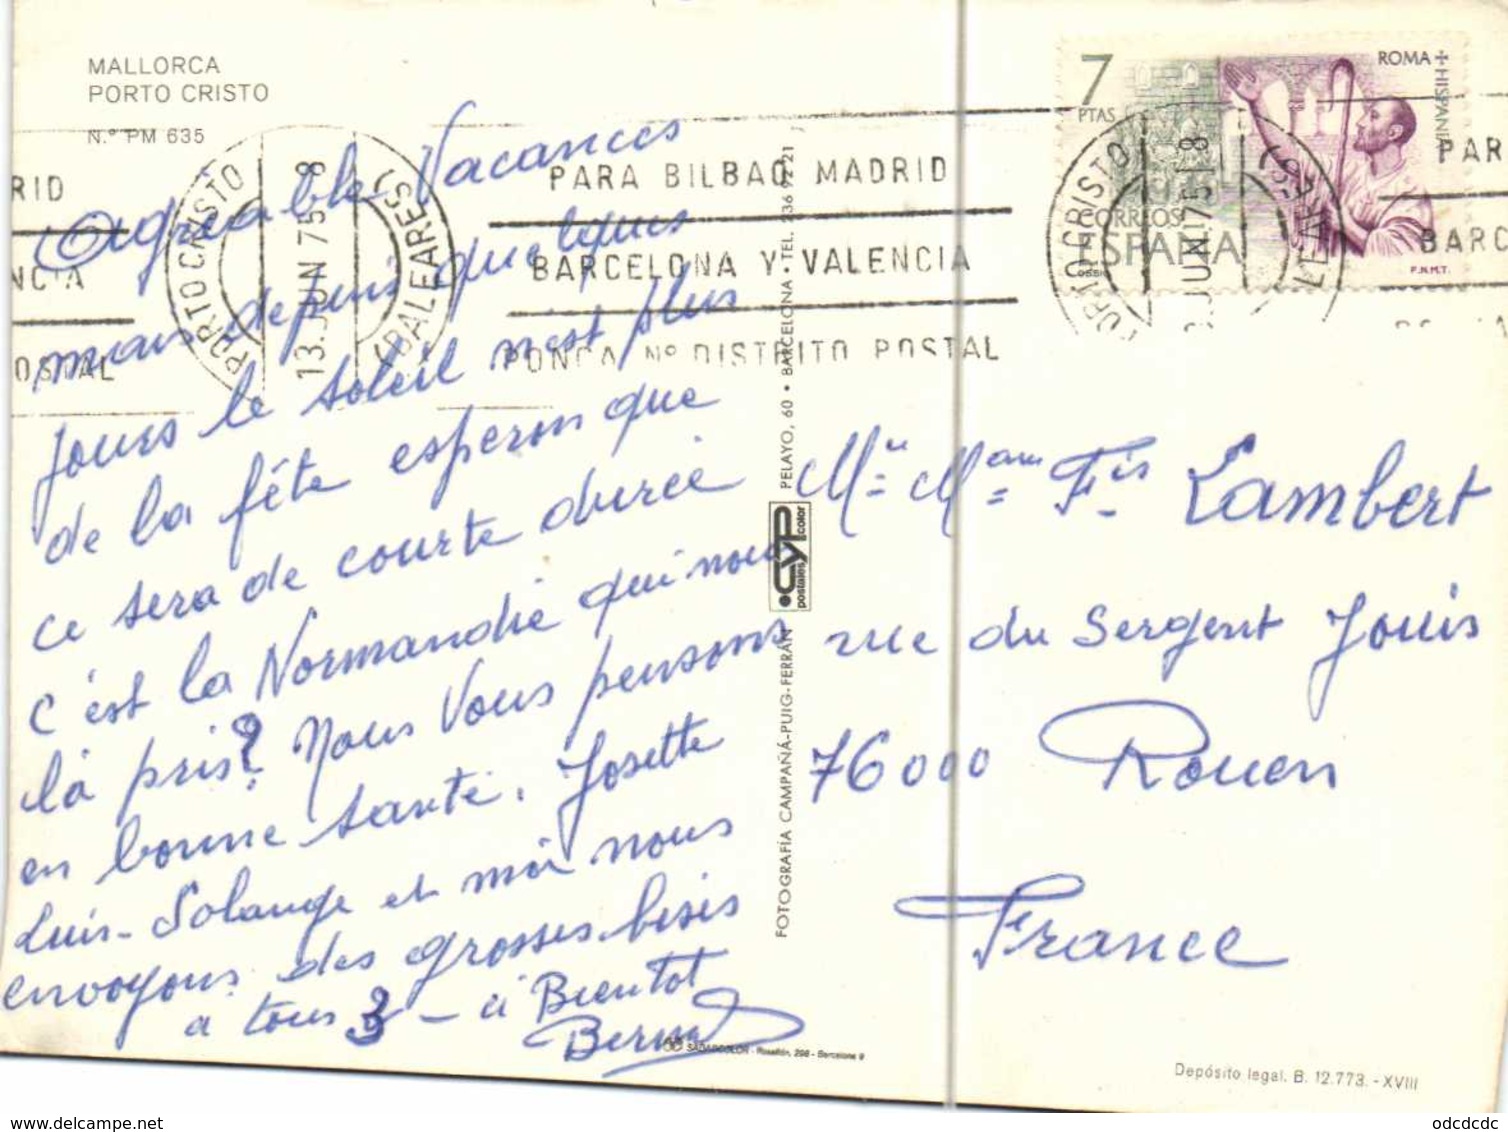 MALLORCA
PORTO CRISTO
N.º PM 635
Agreable Vacances
mais depuis quelques
jours le soleil n'est plus
de la fête esperon que
ce sera de courte durée
c'est la Normandie qui nous
là pris? Nous Vous pensons
en bonne santé. Josette
Luis - Solange et moi nous
envoyons des grosses bisis
a tous 3 - a Bientot
PORTO CRISTO
(BALEARES)
13.JUN 75 8
PARA BILBAO MADRID
BARCELONA Y VALENCIA
PONGA Nº DISTRITO POSTAL
RID
NCIA
OSTAL
7
PTAS
ROMA + HISPANIA
CORREOS
ESPAÑA
F.N.M.T.
PORTO CRISTO
JUN 75 8
PAR
BARC
FOTOGRAFÍA CAMPAÑÁ-PUIG-FERRÁN
CYP
postales color
PELAYO, 60 • BARCELONA • TEL. 21
Mr = Mme = Fis Lambert
rue du Sergent Jouis
76000 Rouen
France
SADAGCOLOR - Rosellón, 298 - Barcelona 9
Depósito legal. B. 12.773. - XVIII
www.delcampe.net
odcdcdc